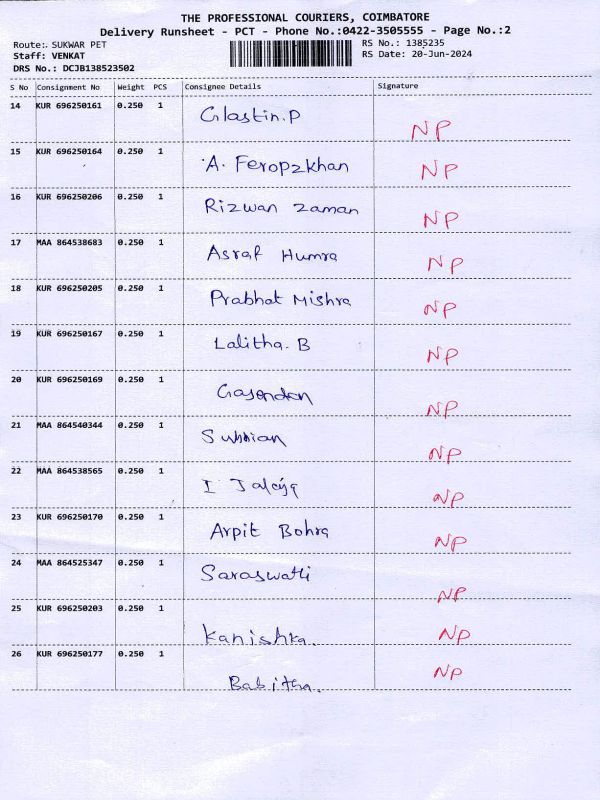 THE PROFESSIONAL COURIERS, COIMBATORE
Delivery Runsheet - PCT - Phone No.:0422-3505555 - Page No.:2
Route: SUKWAR PET RS No.: 1385235
Staff: VENKAT RS Date: 20-Jun-2024
DRS No.: DCJB138523502
S No Consignment No Weight PCS Consignee Details Signature
14 KUR 696250161 0.250 1 Glastin.P NP
15 KUR 696250164 0.250 1 A. Feropzkhan NP
16 KUR 696250206 0.250 1 Rizwan Zaman NP
17 MAA 864538683 0.250 1 Asraf Humra NP
18 KUR 696250205 0.250 1 Prabhat Mishra NP
19 KUR 696250167 0.250 1 Lalitha. B NP
20 KUR 696250169 0.250 1 NP
21 MAA 864540344 0.250 1 Subbian NP
22 MAA 864538565 0.250 1 I NP
23 KUR 696250170 0.250 1 Arpit Bohra NP
24 MAA 864525347 0.250 1 Saraswathi NP
25 KUR 696250203 0.250 1 Kanishka. NP
26 KUR 696250177 0.250 1 Babitha. NP